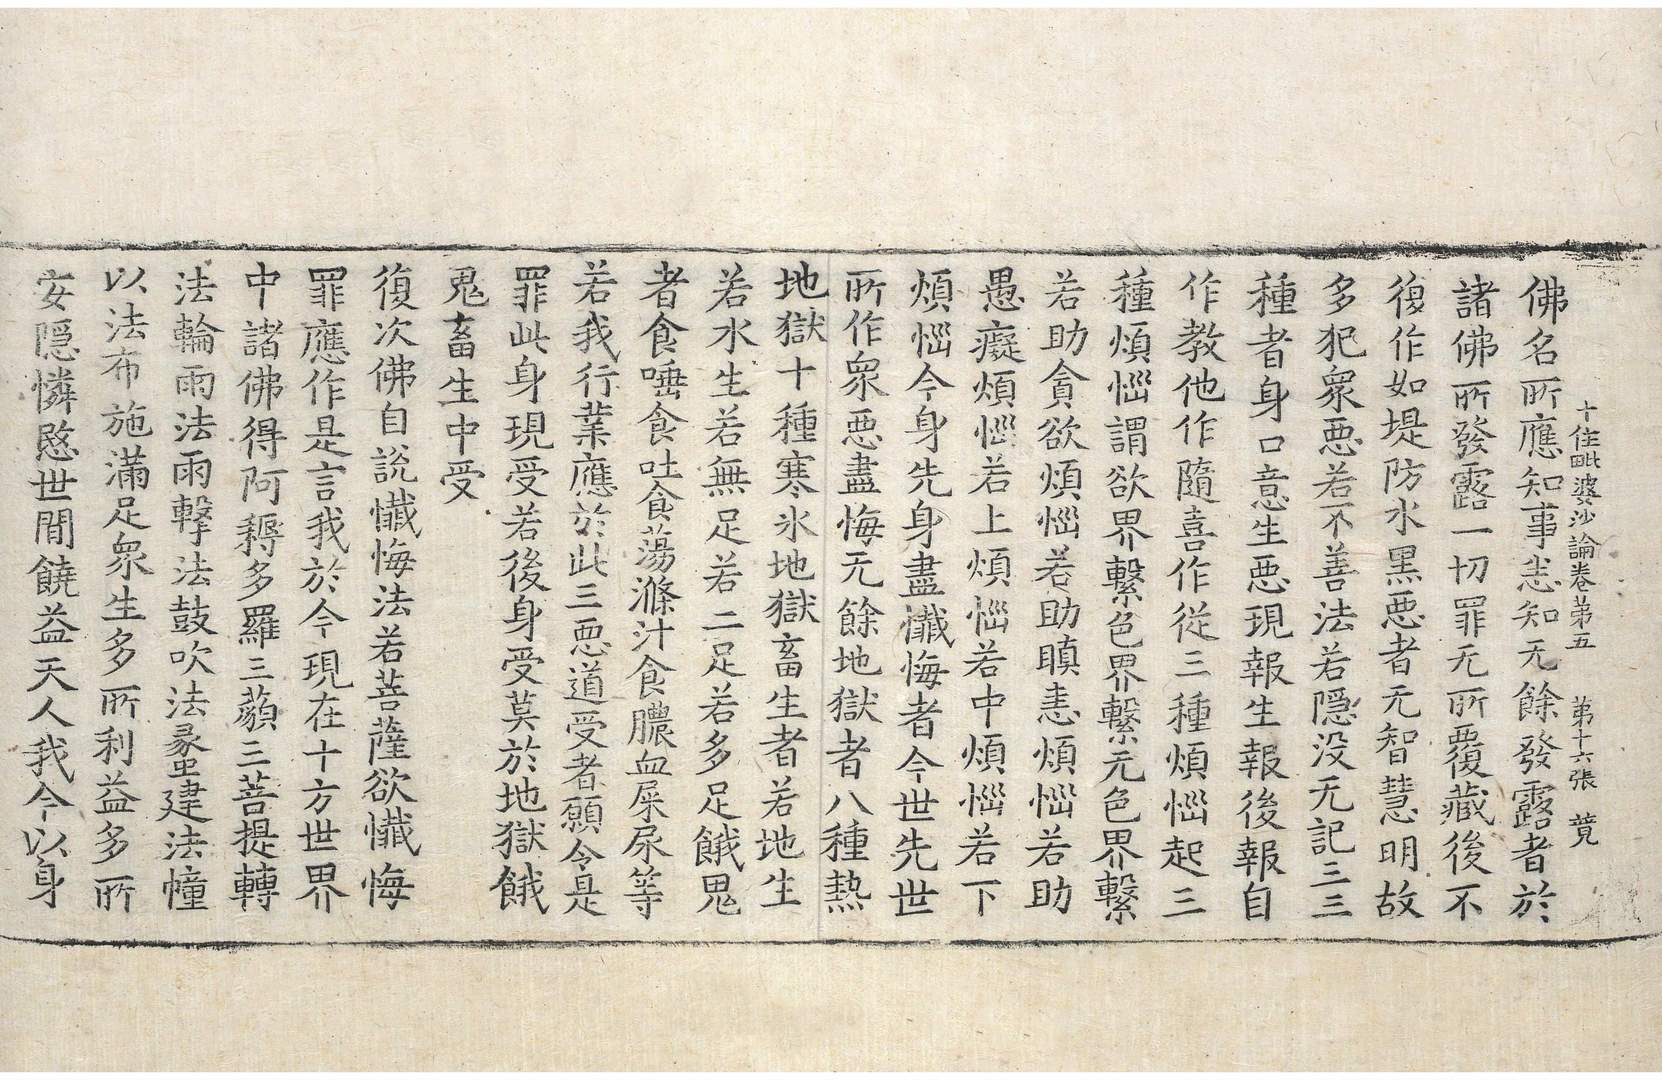 十住毗婆沙論卷第五　第十六張　竟
佛名所應知事悉知无餘發露者於
諸佛所發露一切罪无所覆藏後不
復作如堤防水黑惡者无智慧明故
多犯衆惡若不善法若隠没无記三三
種者身口意生惡現報生報後報自
作教他作隨喜作從三種煩惱起三
種煩惱謂欲界繫色界繫无色界繫
若助貪欲煩惱若助瞋恚煩惱若助
愚癡煩惱若上煩惱若中煩惱若下
煩惱今身先身盡懺悔者今世先世
所作衆惡盡悔无餘地獄者八種熱
地獄十種寒氷地獄畜生者若地生
若水生若無足若二足若多足餓鬼
者食唾食吐食蕩滌汁食膿血屎尿等
若我行業應於此三惡道受者願令是
罪此身現受若後身受莫於地獄餓
鬼畜生中受
復次佛自說懺悔法若菩薩欲懺悔
罪應作是言我於今現在十方世界
中諸佛得阿耨多羅三藐三菩提轉
法輪雨法雨擊法鼓吹法蠡建法幢
以法布施滿足衆生多所利益多所
安隠憐愍世間饒益天人我今以身